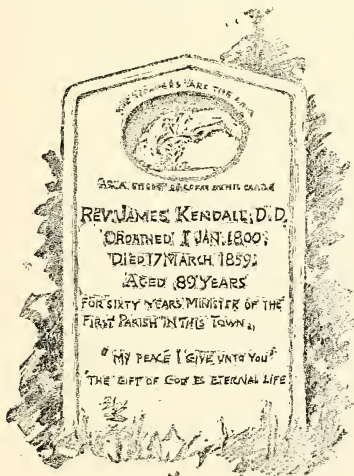 THE REAPERS ARE THE
AS A SHOCK OF CORN IN HIS
REV. JAMES KENDALL, D.D.
ORDAINED 1 JAN. 1800;
DIED 17 MARCH 1859;
AGED 89 YEARS
FOR SIXTY YEARS MINISTER OF THE
FIRST PARISH IN THIS TOWN.
"MY PEACE I GIVE UNTO YOU"
"THE GIFT OF GOD IS ETERNAL LIFE